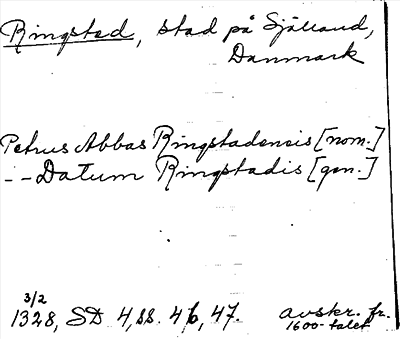 Ringsted, stad på Själland,
Danmark
Petrus Abbas Ringstadensis [nom.]
- - Datum Ringstadis [gen.]
3/2
1328, SD 4, ss. 46, 47. avskr. fr.
1600-talet